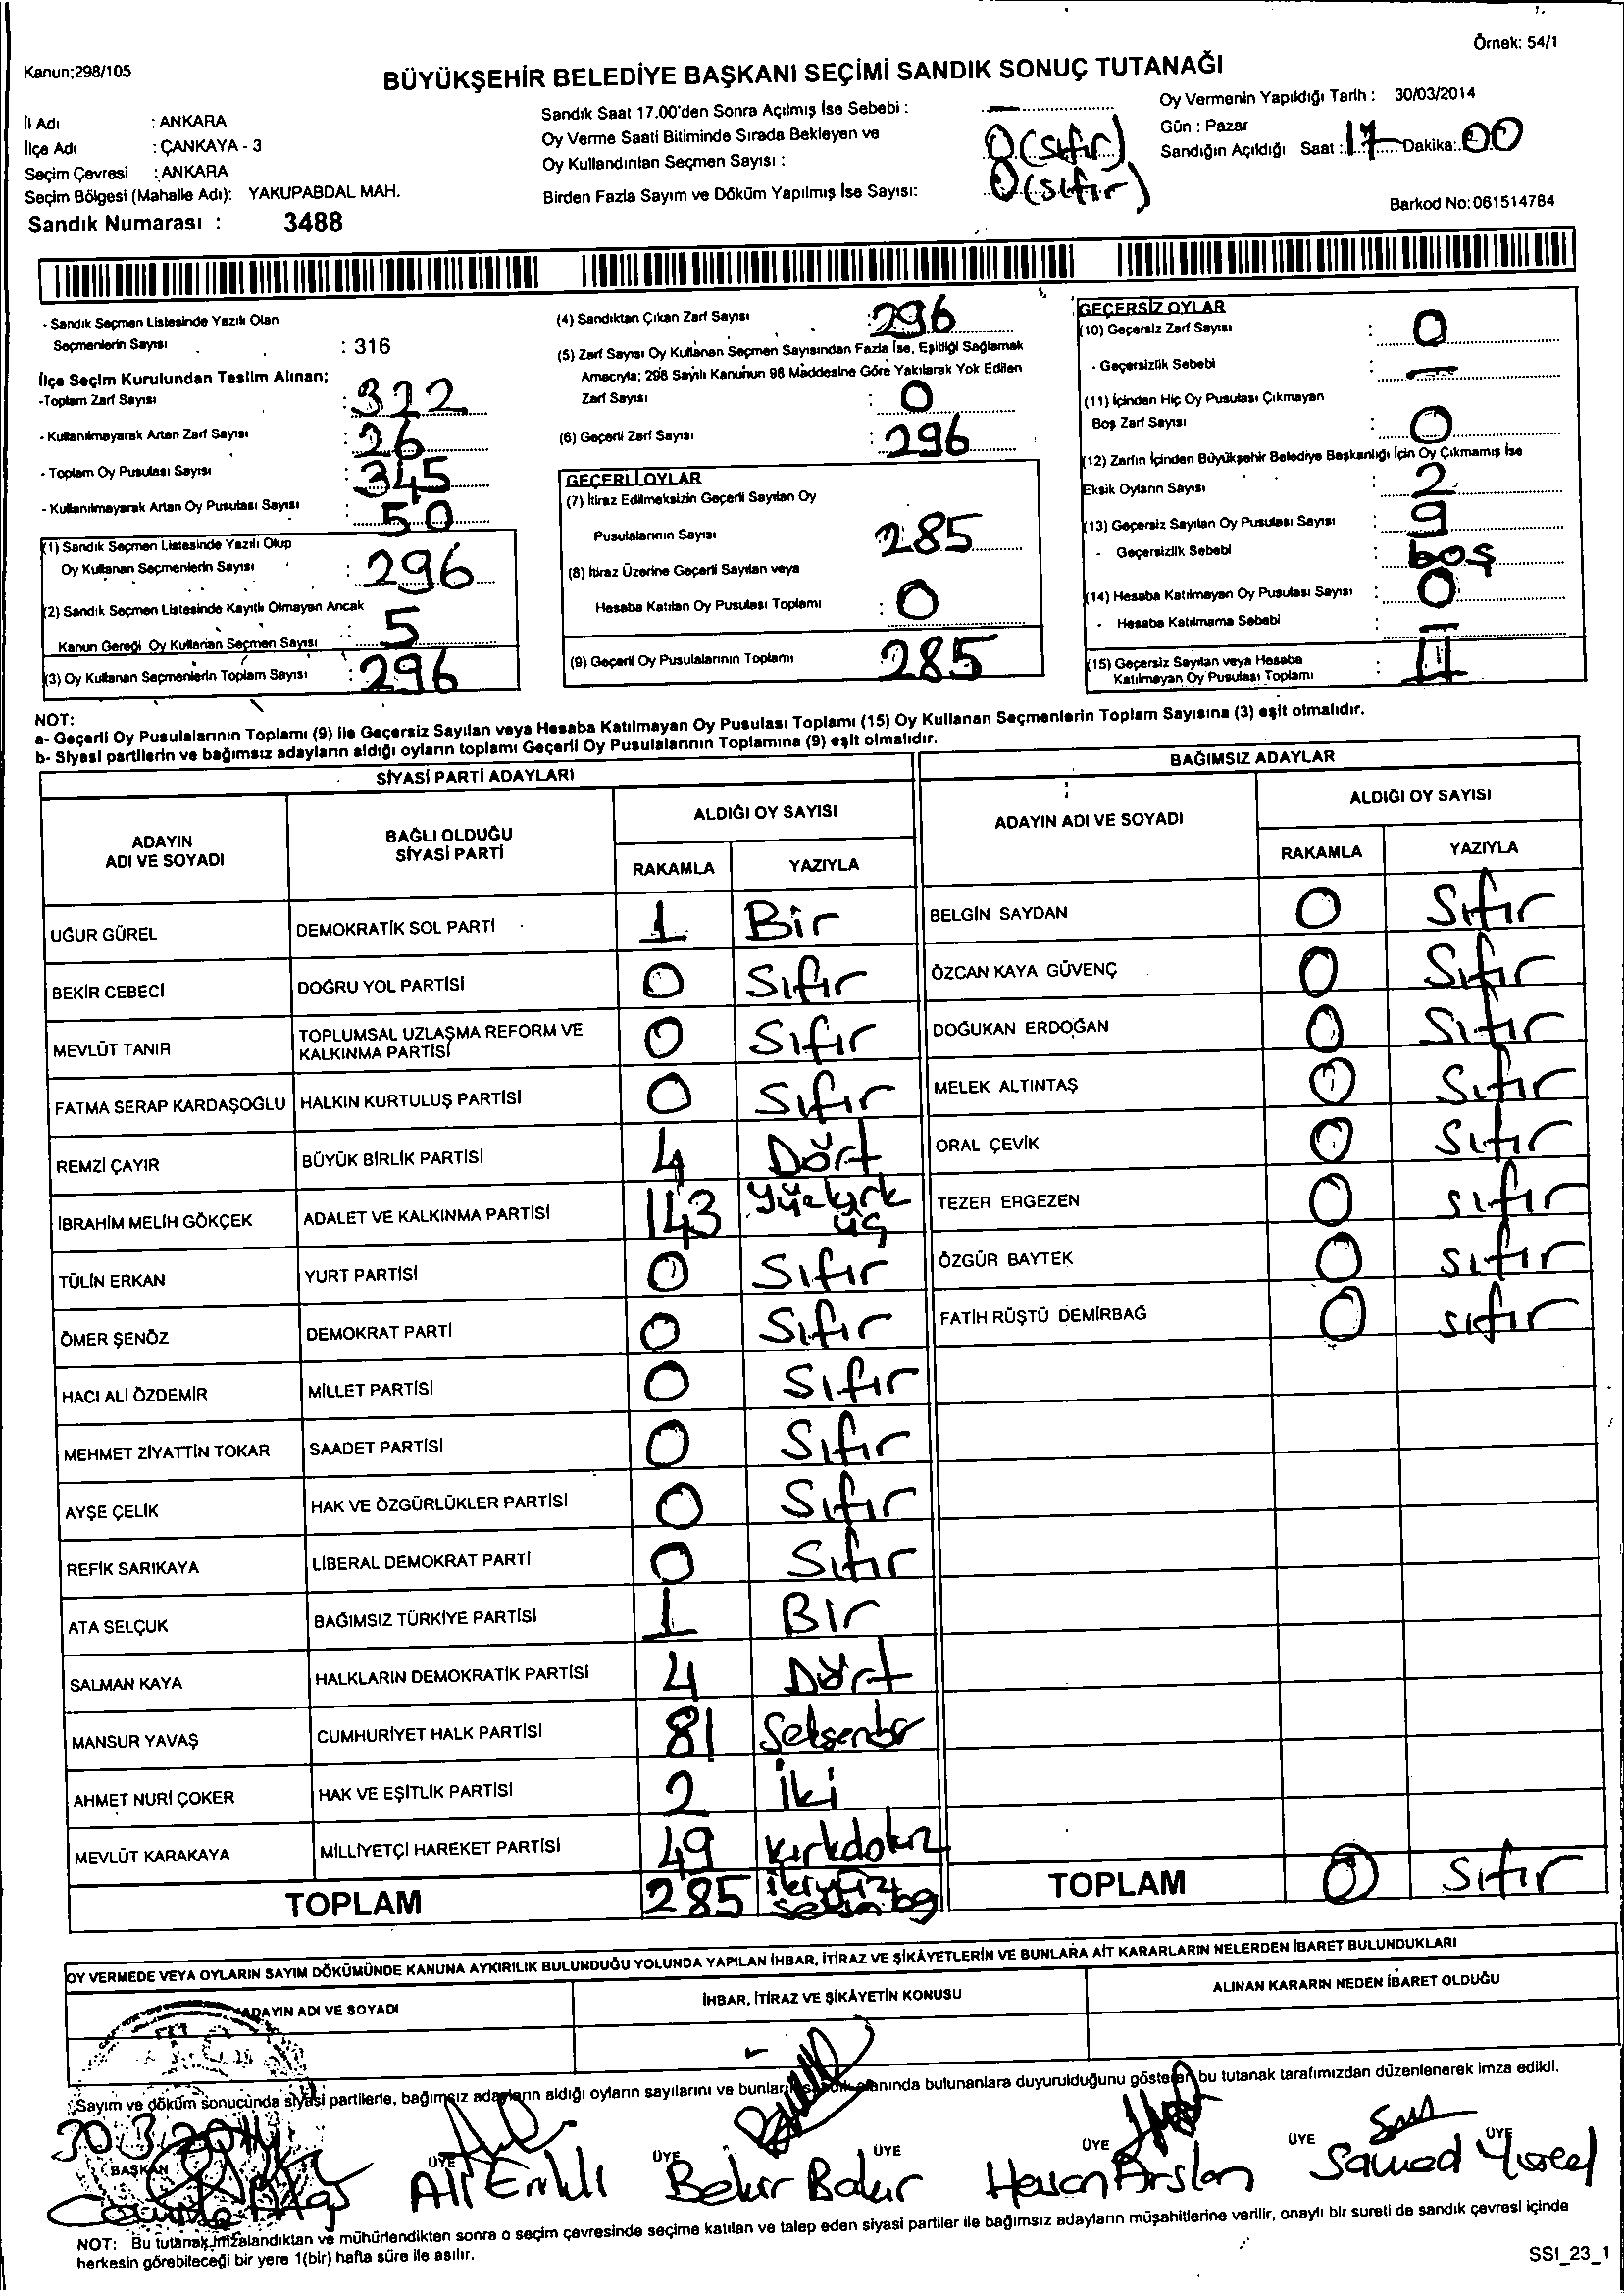 Örnek: 54/1
Kanun;298/105
BÜYÜKŞEHİR BELEDİYE BAŞKANI SEÇİMİ SANDIK SONUÇ TUTANAĞI
İli Adı : ANKARA
İlçe Adı : ÇANKAYA - 3
Seçim Çevresi : ANKARA
Seçim Bölgesi (Mahalle Adı): YAKUPABDAL MAH.
Sandık Numarası : 3488
Sandık Saat 17.00'den Sonra Açılmış İse Sebebi : —
Oy Verme Saati Bitiminde Sırada Bekleyen ve
Oy Kullandırılan Seçmen Sayısı : 0 (sıfır)
Birden Fazla Sayım ve Döküm Yapılmış İse Sayısı: 0 (sıfır)
Oy Vermenin Yapıldığı Tarih : 30/03/2014
Gün : Pazar
Sandığın Açıldığı Saat : 17 Dakika: 00
Barkod No: 061514784
- Sandık Seçmen Listesinde Yazılı Olan
Seçmenlerin Sayısı : 316
İlçe Seçim Kurulundan Teslim Alınan;
-Toplam Zarf Sayısı : 322
- Kullanılmayarak Artan Zarf Sayısı : 26
- Toplam Oy Pusulası Sayısı : 345
- Kullanılmayarak Artan Oy Pusulası Sayısı : 50
(1) Sandık Seçmen Listesinde Yazılı Olup
Oy Kullanan Seçmenlerin Sayısı : 296
(2) Sandık Seçmen Listesinde Kayıtlı Olmayan Ancak
Kanun Gereği Oy Kullanan Seçmen Sayısı : 5
(3) Oy Kullanan Seçmenlerin Toplam Sayısı : 296
(4) Sandıktan Çıkan Zarf Sayısı : 296
(5) Zarf Sayısı Oy Kullanan Seçmen Sayısından Fazla İse, Eşitliği Sağlamak
Amacıyla; 298 Sayılı Kanunun 98.Maddesine Göre Yakılarak Yok Edilen
Zarf Sayısı : 0
(6) Geçerli Zarf Sayısı : 296
GEÇERLİ OYLAR
(7) İtiraz Edilmeksizin Geçerli Sayılan Oy
Pusulalarının Sayısı 285
(8) İtiraz Üzerine Geçerli Sayılan veya
Hesaba Katılan Oy Pusulası Toplamı : 0
(9) Geçerli Oy Pusulalarının Toplamı 285
GEÇERSİZ OYLAR
(10) Geçersiz Zarf Sayısı : 0
- Geçersizlik Sebebi : —
(11) İçinden Hiç Oy Pusulası Çıkmayan
Boş Zarf Sayısı : 0
(12) Zarfın İçinden Büyükşehir Belediye Başkanlığı İçin Oy Çıkmamış İse
Eksik Oyların Sayısı : 2
(13) Geçersiz Sayılan Oy Pusulası Sayısı : 9
- Geçersizlik Sebebi : boş
(14) Hesaba Katılmayan Oy Pusulası Sayısı : 0
- Hesaba Katılmama Sebebi : —
(15) Geçersiz Sayılan veya Hesaba
Katılmayan Oy Pusulası Toplamı : 11
NOT:
a- Geçerli Oy Pusulalarının Toplamı (9) ile Geçersiz Sayılan veya Hesaba Katılmayan Oy Pusulası Toplamı (15) Oy Kullanan Seçmenlerin Toplam Sayısına (3) eşit olmalıdır.
b- Siyasi partilerin ve bağımsız adayların aldığı oyların toplamı Geçerli Oy Pusulalarının Toplamına (9) eşit olmalıdır.
SİYASİ PARTİ ADAYLARI
ADAYIN ADI VE SOYADI BAĞLI OLDUĞU SİYASİ PARTİ ALDIĞI OY SAYISI RAKAMLA YAZIYLA
UĞUR GÜREL DEMOKRATİK SOL PARTİ 1 Bir
BEKİR CEBECİ DOĞRU YOL PARTİSİ 0 Sıfır
MEVLÜT TANIR TOPLUMSAL UZLAŞMA REFORM VE KALKINMA PARTİSİ 0 Sıfır
FATMA SERAP KARDAŞOĞLU HALKIN KURTULUŞ PARTİSİ 0 Sıfır
REMZİ ÇAYIR BÜYÜK BİRLİK PARTİSİ 4 Dört
İBRAHİM MELİH GÖKÇEK ADALET VE KALKINMA PARTİSİ 143 Yüzkırk üç
TÜLİN ERKAN YURT PARTİSİ 0 Sıfır
ÖMER ŞENÖZ DEMOKRAT PARTİ 0 Sıfır
HACI ALİ ÖZDEMİR MİLLET PARTİSİ 0 Sıfır
MEHMET ZİYATTİN TOKAR SAADET PARTİSİ 0 Sıfır
AYŞE ÇELİK HAK VE ÖZGÜRLÜKLER PARTİSİ 0 Sıfır
REFİK SARIKAYA LİBERAL DEMOKRAT PARTİ 0 Sıfır
ATA SELÇUK BAĞIMSIZ TÜRKİYE PARTİSİ 1 BIr
SALMAN KAYA HALKLARIN DEMOKRATİK PARTİSİ 4 Dört
MANSUR YAVAŞ CUMHURİYET HALK PARTİSİ 81 Seksenbir
AHMET NURİ ÇOKER HAK VE EŞİTLİK PARTİSİ 2 İki
MEVLÜT KARAKAYA MİLLİYETÇİ HAREKET PARTİSİ 49 kırkdokuz
TOPLAM 285 ikiyüz seksenbeş
BAĞIMSIZ ADAYLAR
ADAYIN ADI VE SOYADI ALDIĞI OY SAYISI RAKAMLA YAZIYLA
BELGİN SAYDAN 0 Sıfır
ÖZCAN KAYA GÜVENÇ 0 Sıfır
DOĞUKAN ERDOĞAN 0 Sıfır
MELEK ALTINTAŞ 0 Sıfır
ORAL ÇEVİK 0 Sıfır
TEZER ERGEZEN 0 sıfır
ÖZGÜR BAYTEK 0 sıfır
FATİH RÜŞTÜ DEMİRBAĞ 0 sıfır
TOPLAM 0 Sıfır
OY VERMEDE VEYA OYLARIN SAYIM DÖKÜMÜNDE KANUNA AYKIRILIK BULUNDUĞU YOLUNDA YAPILAN İHBAR, İTİRAZ VE ŞİKÂYETLERİN VE BUNLARA AİT KARARLARIN NELERDEN İBARET BULUNDUKLARI
ADAYIN ADI VE SOYADI İHBAR, İTİRAZ VE ŞİKÂYETİN KONUSU ALINAN KARARIN NEDEN İBARET OLDUĞU
Sayım ve döküm sonucunda siyasi partilerle, bağımsız adayların aldığı oyların sayılarını ve bunların sandık alanında bulunanlara duyurulduğunu gösteren bu tutanak tarafımızdan düzenlenerek imza edildi.
30.3.2014
BAŞKAN ÜYE ÜYE ÜYE ÜYE ÜYE ÜYE
Ali Bekir Bakır Hasan Arslan Samed Yücel
NOT: Bu tutanak imzalandıktan ve mühürlendikten sonra o seçim çevresinde seçime katılan ve talep eden siyasi partiler ile bağımsız adayların müşahitlerine verilir, onaylı bir sureti de sandık çevresi içinde
herkesin görebileceği bir yere 1(bir) hafta süre ile asılır.
SSI_23_1